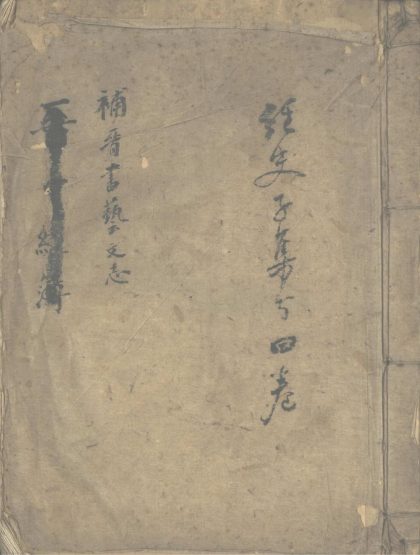 經史子集分四卷
補晉書藝文志